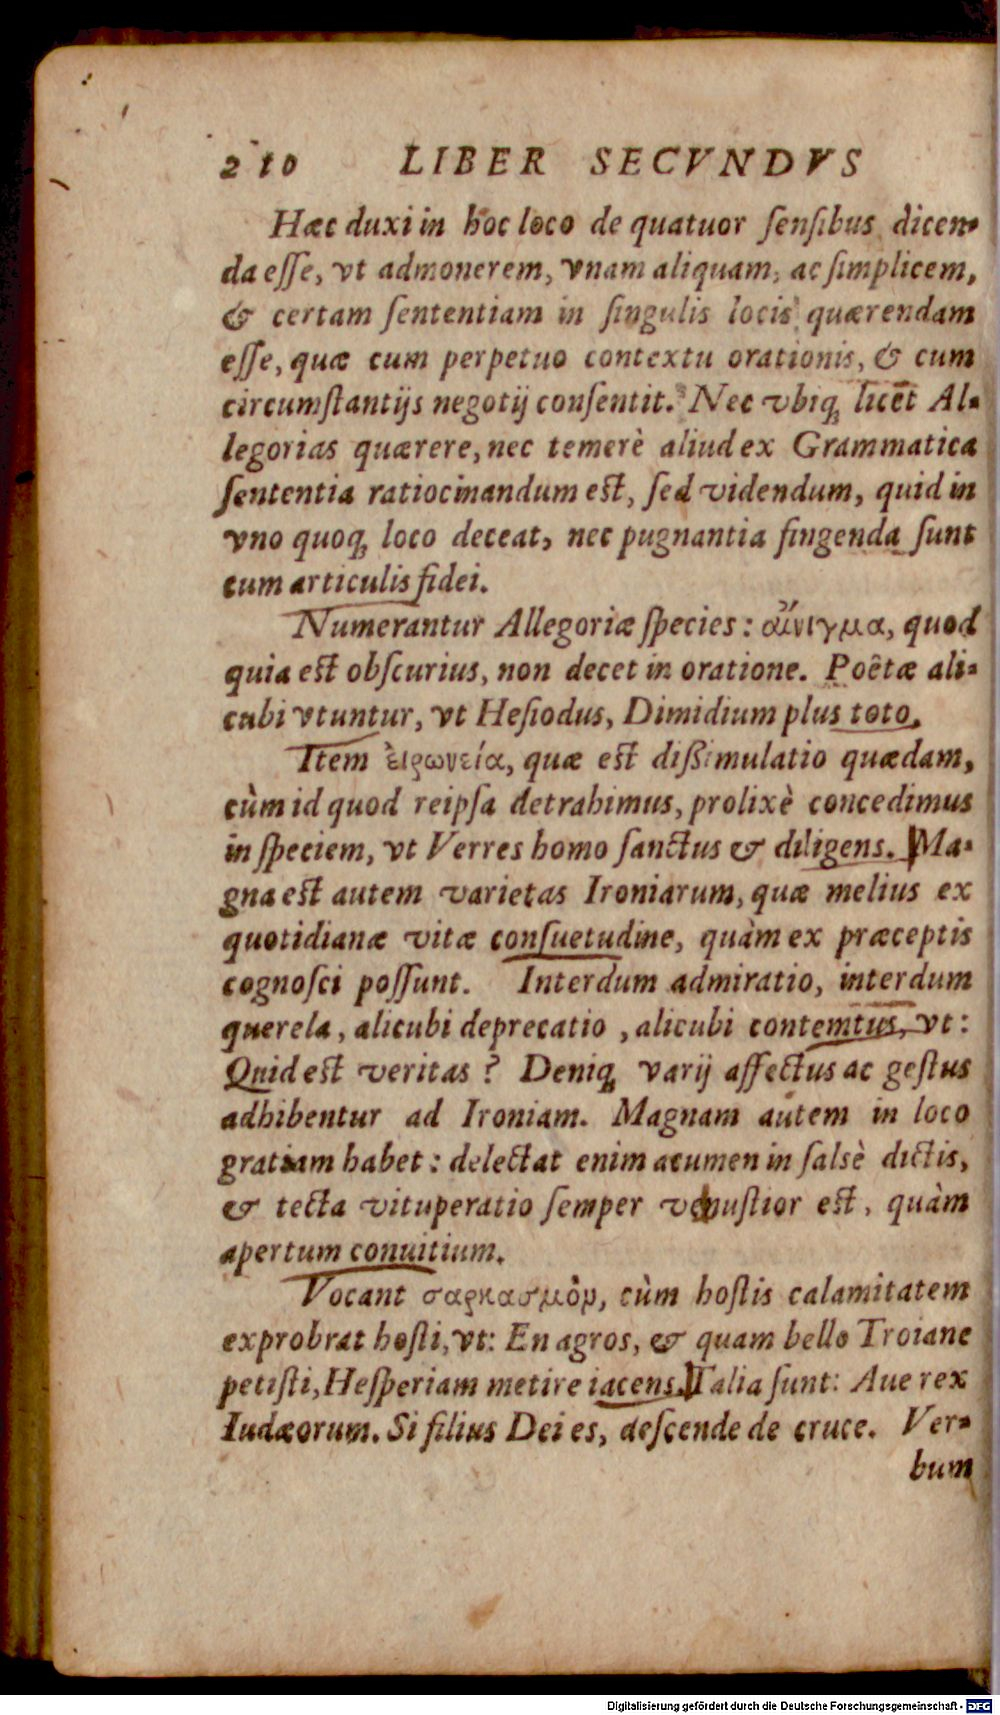 210 LIBER SECVNDVS
Hæc duxi in hoc loco de quatuor ſenſibus dicen-
da eſſe, vt admonerem, vnam aliquam, ac ſimplicem,
& certam ſententiam in ſingulis locis quærendam
eſſe, quæ cum perpetuo contextu orationis, & cum
circumſtantijs negotij conſentit. Nec vbiq; licet Al-
legorias quærere, nec temerè aliud ex Grammatica
ſententia ratiocinandum eſt, ſed videndum, quid in
vno quoq; loco deceat, nec pugnantia fingenda ſunt
cum articulis fidei.
Numerantur Allegoriæ ſpecies: αἴνιγμα, quod
quia eſt obſcurius, non decet in oratione. Poêtæ ali-
cubi vtuntur, vt Heſiodus, Dimidium plus toto.
Item ἐιρωνεία, quæ eſt diſsimulatio quædam,
cùm id quod reipſa detrahimus, prolixè concedimus
in ſpeciem, vt Verres homo ſanctus & diligens. Ma-
gna eſt autem varietas Ironiarum, quæ melius ex
quotidianæ vitæ conſuetudine, quàm ex præceptis
cognoſci poſſunt. Interdum admiratio, interdum
querela, alicubi deprecatio, alicubi contemtus, vt:
Quid eſt veritas? Deniq; varij affectus ac geſtus
adhibentur ad Ironiam. Magnam autem in loco
gratiam habet: delectat enim acumen in ſalsè dictis,
& tecta vituperatio ſemper venuſtior eſt, quàm
apertum conuitium.
Vocant σαρκασμὸν, cùm hoſtis calamitatem
exprobrat hoſti, vt: En agros, & quam bello Troiane
petiſti, Heſperiam metire iacens. Talia ſunt: Aue rex
Iudæorum. Si filius Dei es, deſcende de cruce. Ver-
bum
Digitalisierung gefördert durch die Deutsche Forschungsgemeinschaft - DFG